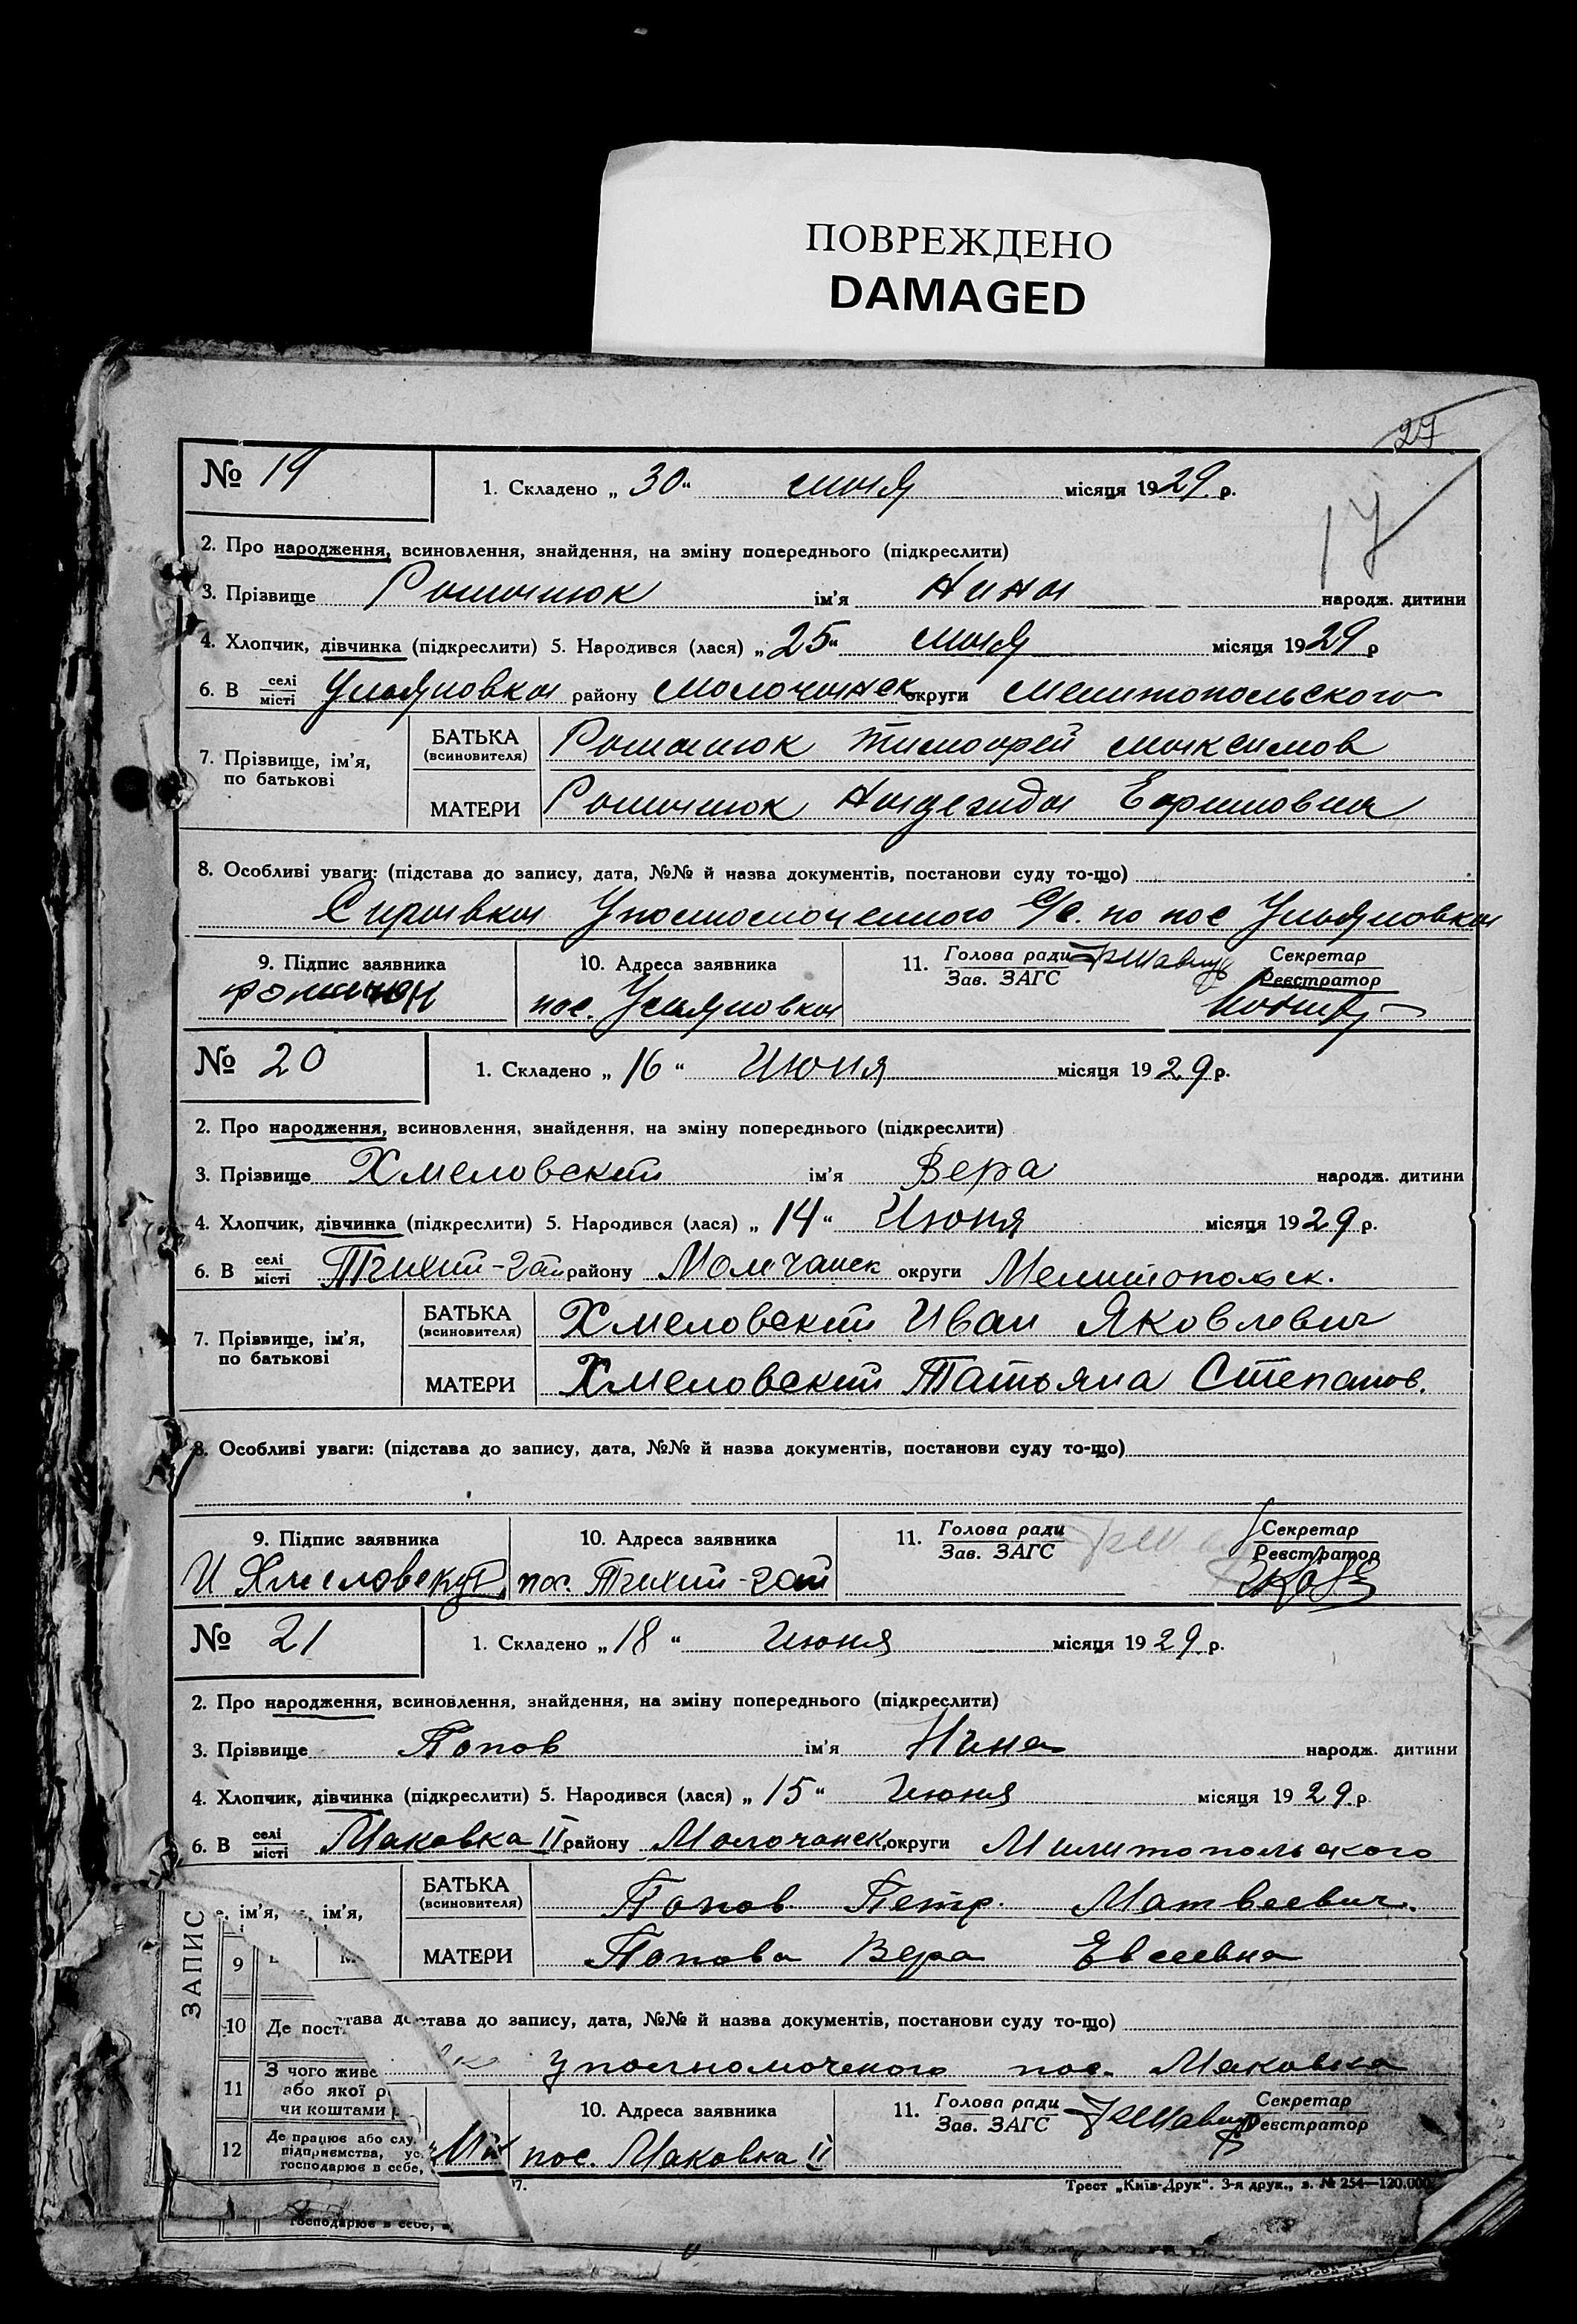 ПОВРЕЖДЕНО
DAMAGED
27
17
№ 19
1. Складено „ 30 “ мая місяця 1929 р.
2. Про народження, всиновлення, знайдення, на зміну попереднього (підкреслити)
3. Прізвище Романюк ім’я Нина народж. дитини
4. Хлопчик, дівчинка (підкреслити) 5. Народився (лася) „ 25 “ мая місяця 1929 р
6. В селі/місті Ульяновка району Молочанск округи Мелитопольского
7. Прізвище, ім’я, по батькові
БАТЬКА (всиновителя) Романюк Тимофей Максимов
МАТЕРИ Романюк Надежда Ефимовна
8. Особливі уваги: (підстава до запису, дата, №№ й назва документів, постанови суду то-що)
Справка Уполномоченного С/с. по пос Ульяновка
9. Підпис заявника
10. Адреса заявника пос. Ульяновка
11. Голова ради/Зав. ЗАГС
Секретар/Реєстратор
№ 20
1. Складено „ 16 “ Июня місяця 1929 р.
2. Про народження, всиновлення, знайдення, на зміну попереднього (підкреслити)
3. Прізвище Хмеловский ім’я Вера народж. дитини
4. Хлопчик, дівчинка (підкреслити) 5. Народився (лася) „ 14 “ Июня місяця 1929 р.
6. В селі/місті Тихий-гай району Молчанск округи Мелитопольск.
7. Прізвище, ім’я, по батькові
БАТЬКА (всиновителя) Хмеловский Иван Яковлевич
МАТЕРИ Хмеловский Татьяна Степанов.
8. Особливі уваги: (підстава до запису, дата, №№ й назва документів, постанови суду то-що)
9. Підпис заявника И Хмеловский
10. Адреса заявника пос. Тихий-гай
11. Голова ради/Зав. ЗАГС
Секретар/Реєстратор
№ 21
1. Складено „ 18 “ Июня місяця 1929 р.
2. Про народження, всиновлення, знайдення, на зміну попереднього (підкреслити)
3. Прізвище Попов ім’я Нина народж. дитини
4. Хлопчик, дівчинка (підкреслити) 5. Народився (лася) „ 15 “ Июня місяця 1929 р.
6. В селі/місті Маковка II району Молочанск округи Милитопольского
ім’я, ім’я,
БАТЬКА (всиновителя) Попов Петр. Матвеевич.
МАТЕРИ Попова Вера Евсеевна
ЗАПИС
9
10 Де пост
става до запису, дата, №№ й назва документів, постанови суду то-що)
уполномоченого пос. Маковка
11 З чого живе
або якої
чи коштами
10. Адреса заявника пос. Маковка II
11. Голова ради/Зав. ЗАГС
Секретар/Реєстратор
12 Де працює або слу
підприємства, ус.
господарює в себе,
Трест „Київ-Друк“. 3-я друк., з. № 254—120.000
господарює в себе,